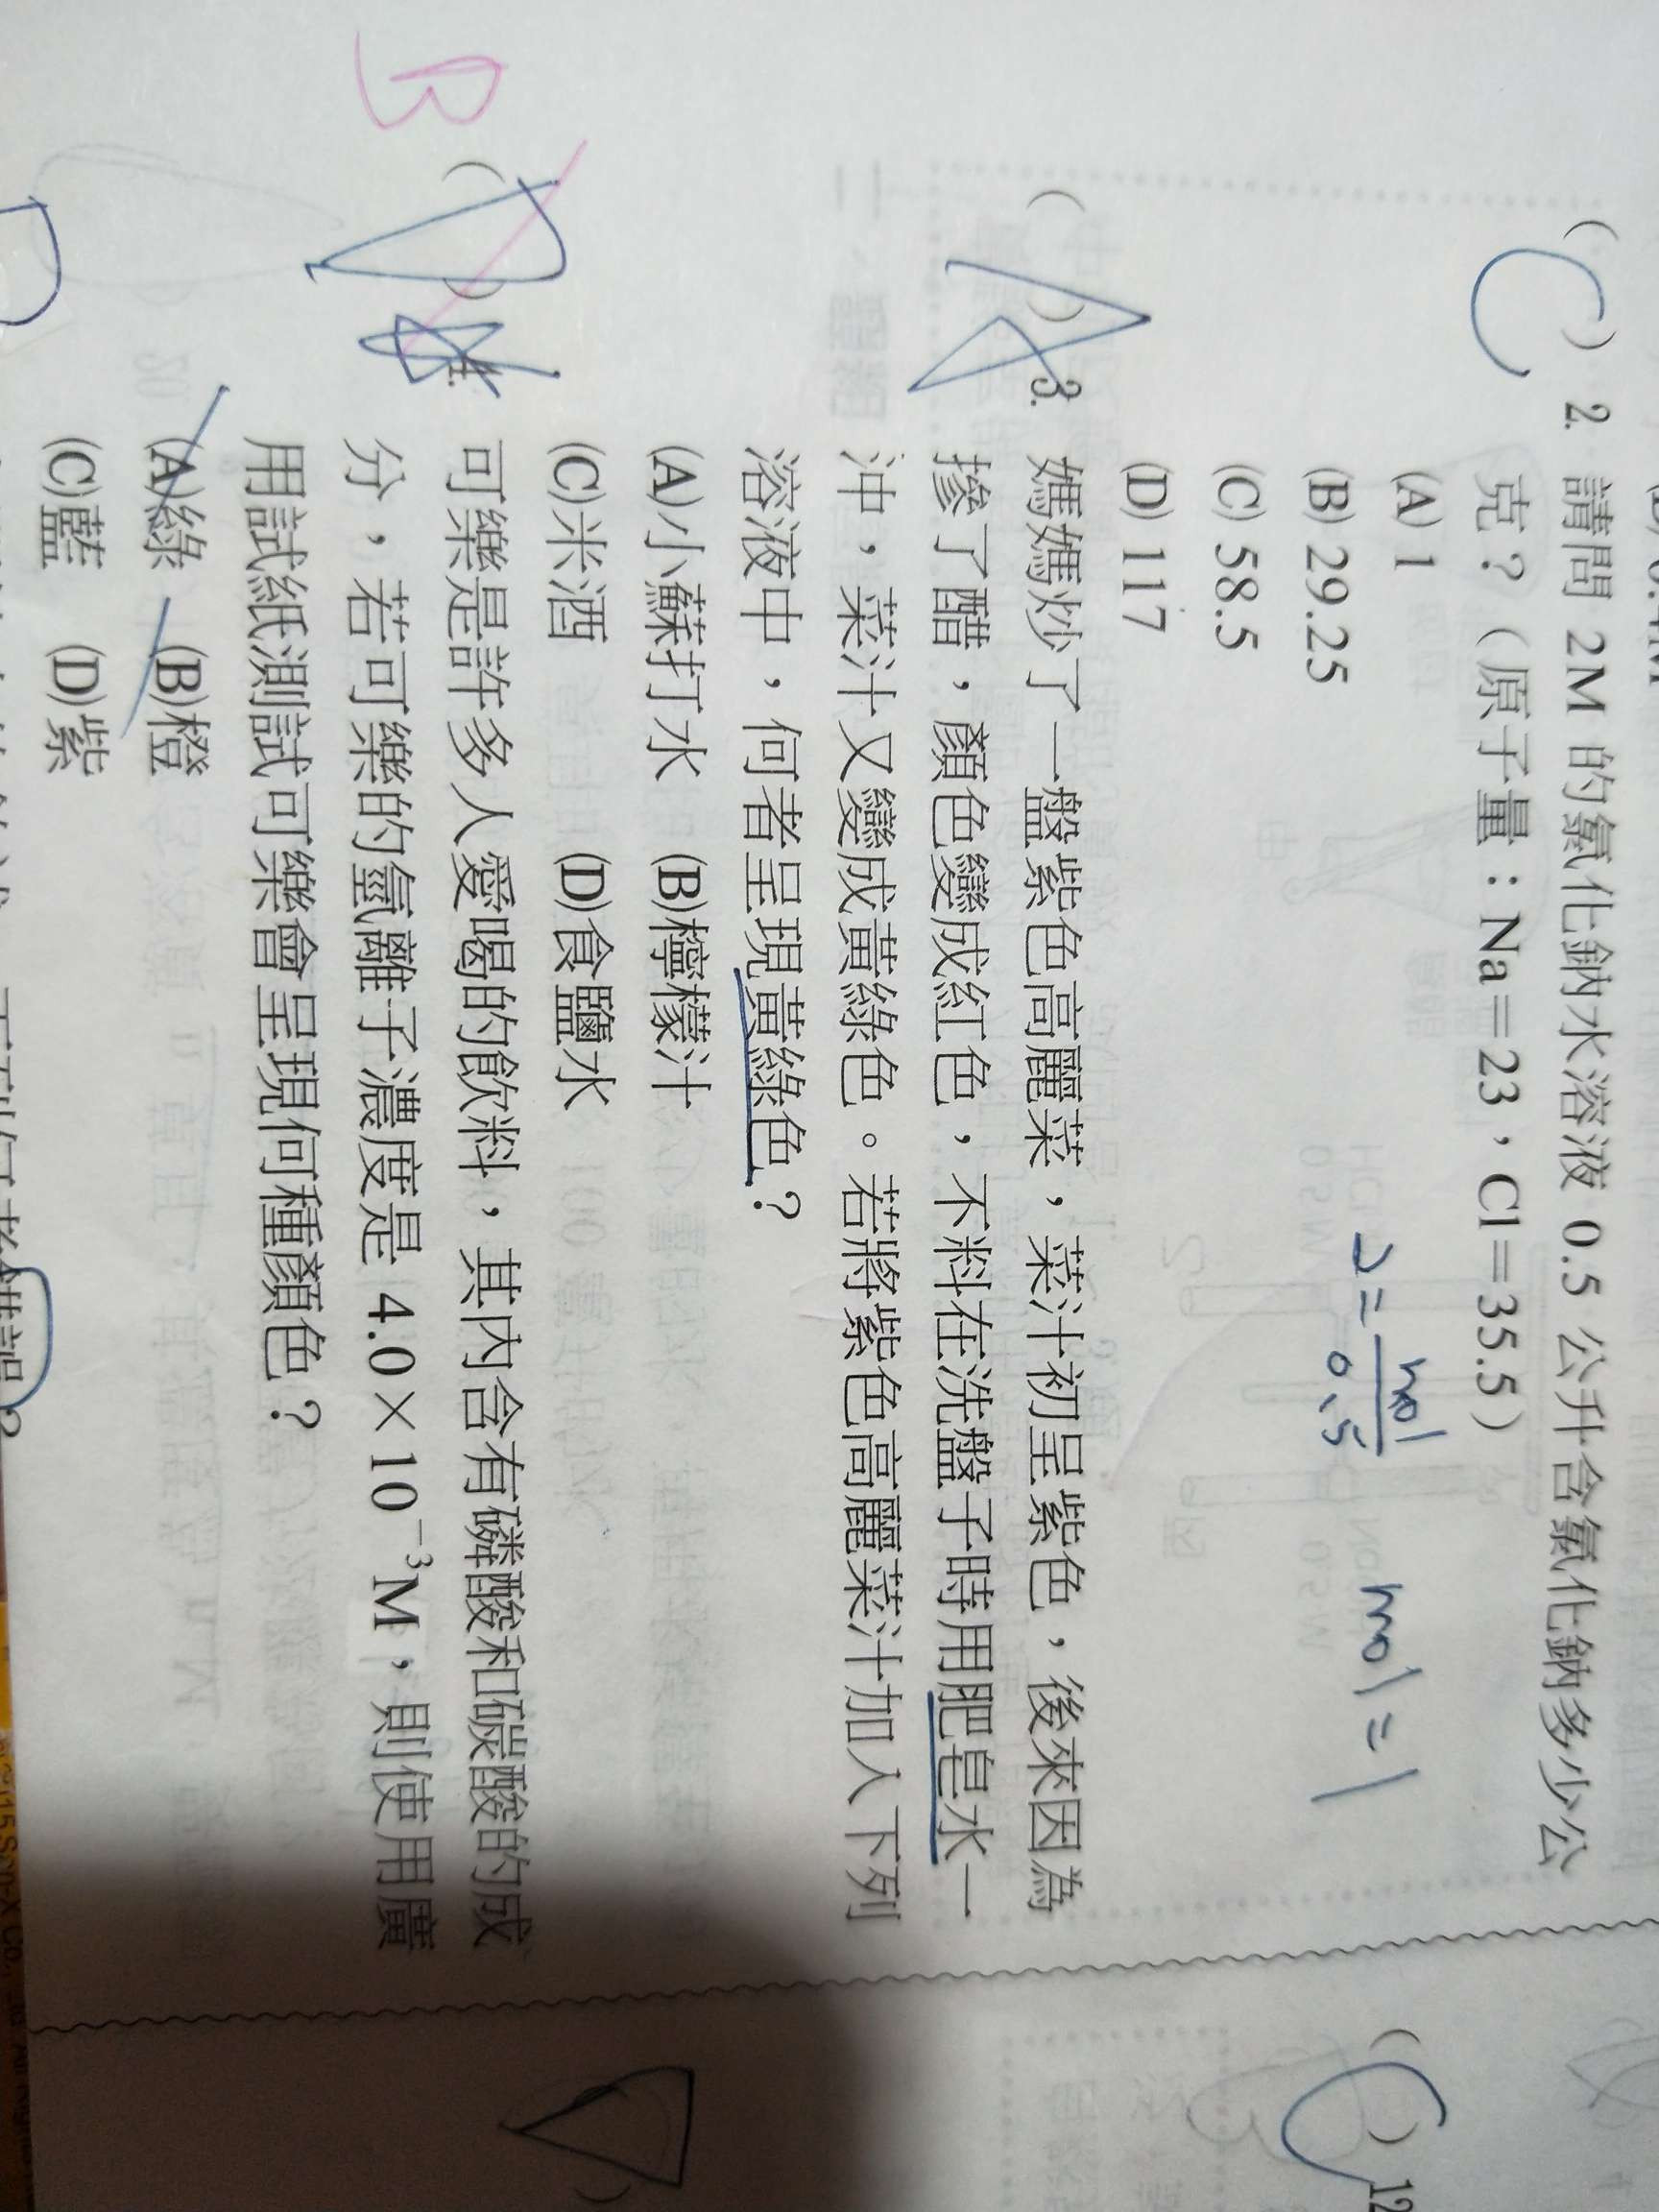 (C) 2. 請問 2M 的氯化鈉水溶液 0.5 公升含氯化鈉多少公
克？（原子量：Na＝23，Cl＝35.5）
(A) 1
(B) 29.25
(C) 58.5
(D) 117
2 = mol / 0.5
mol = 1
(A) 3. 媽媽炒了一盤紫色高麗菜，菜汁初呈紫色，後來因為
摻了醋，顏色變成紅色，不料在洗盤子時用肥皂水一
沖，菜汁又變成黃綠色。若將紫色高麗菜汁加入下列
溶液中，何者呈現黃綠色？
(A)小蘇打水 (B)檸檬汁
(C)米酒 (D)食鹽水
B
( ) 4. 可樂是許多人愛喝的飲料，其內含有磷酸和碳酸的成
分，若可樂的氫離子濃度是 4.0×10⁻³M，則使用廣
用試紙測試可樂會呈現何種顏色？
(A)綠 (B)橙
(C)藍 (D)紫
D
(C) 12